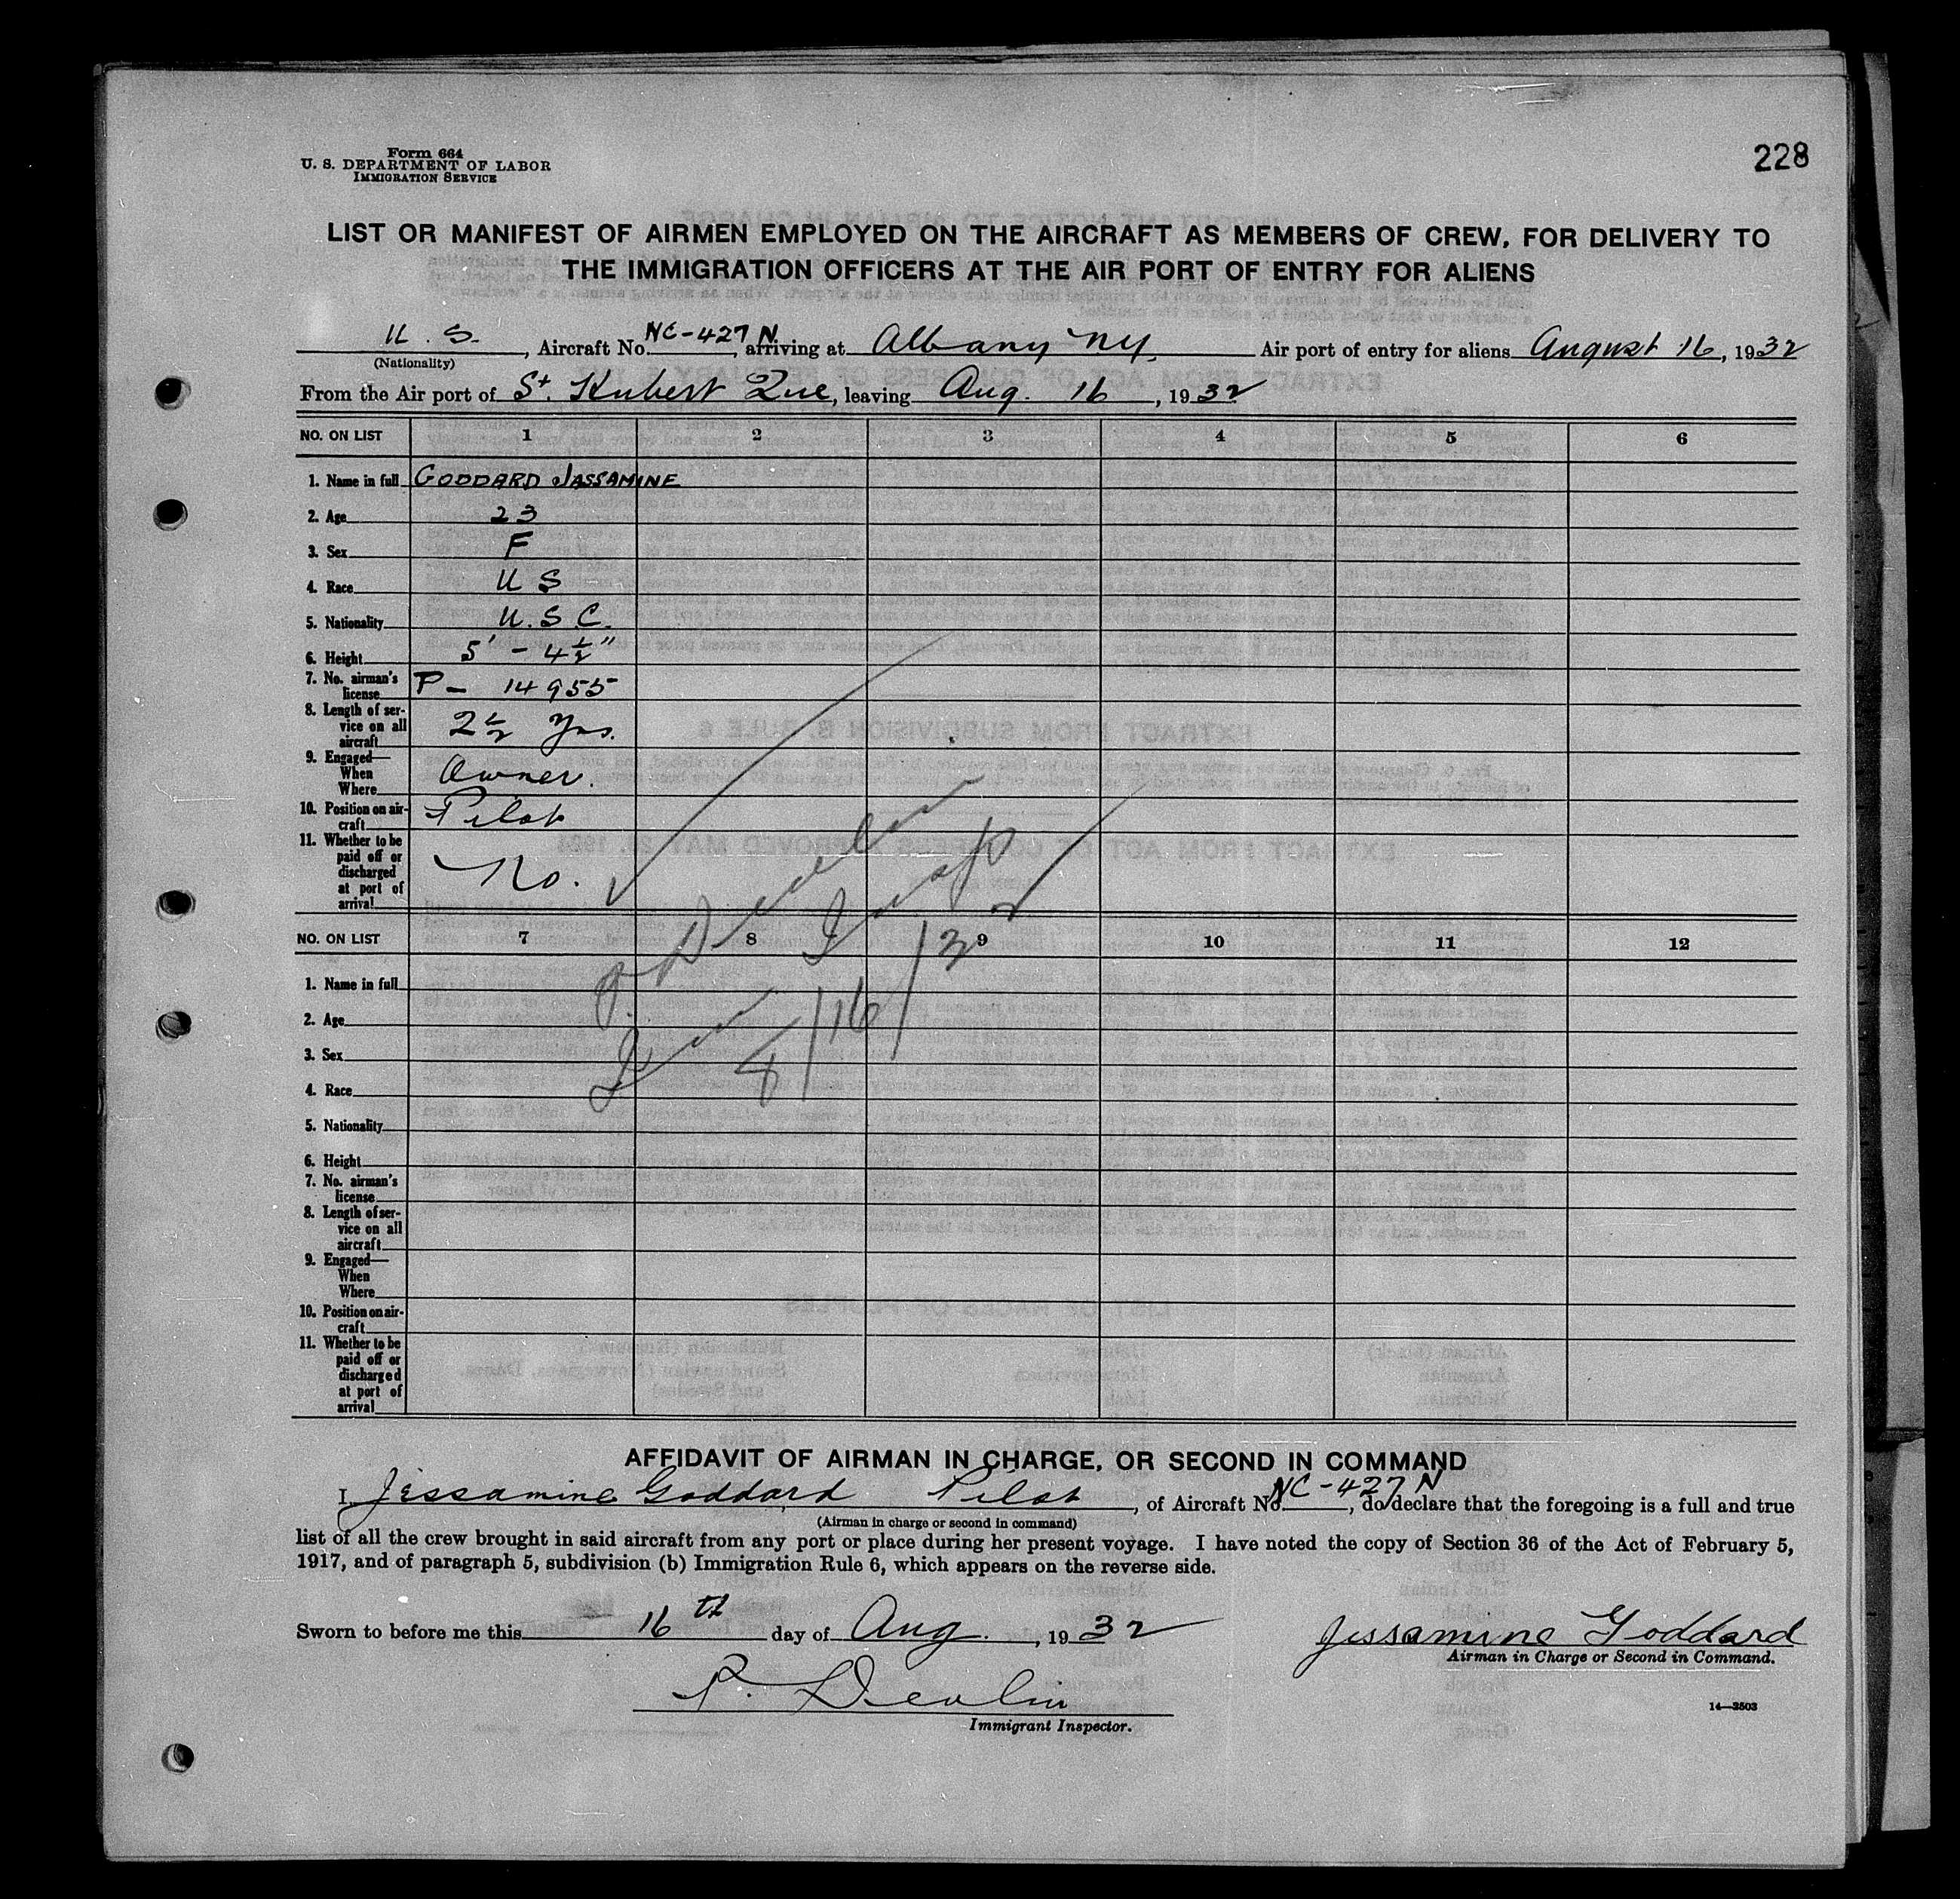 228
Form 664
U. S. DEPARTMENT OF LABOR
IMMIGRATION SERVICE
LIST OR MANIFEST OF AIRMEN EMPLOYED ON THE AIRCRAFT AS MEMBERS OF CREW, FOR DELIVERY TO
THE IMMIGRATION OFFICERS AT THE AIR PORT OF ENTRY FOR ALIENS
U. S., Aircraft No. NC-427 N, arriving at Albany NY, Air port of entry for aliens August 16, 1932
(Nationality)
From the Air port of St. Hubert Que, leaving Aug. 16, 1932
NO. ON LIST 1 2 3 4 5 6
1. Name in full GODDARD JASSAMINE
2. Age 23
3. Sex F
4. Race U S
5. Nationality U. S. C.
6. Height 5' - 4½"
7. No. airman's
license P - 14955
8. Length of ser-
vice on all
aircraft 2½ Yrs.
9. Engaged—
When
Where Owner.
10. Position on air-
craft Pilot
11. Whether to be
paid off or
discharged
at port of
arrival No.
P. Devlin
Insp
8/16/32
NO. ON LIST 7 8 9 10 11 12
1. Name in full
2. Age
3. Sex
4. Race
5. Nationality
6. Height
7. No. airman's
license
8. Length of ser-
vice on all
aircraft
9. Engaged—
When
Where
10. Position on air-
craft
11. Whether to be
paid off or
discharged
at port of
arrival
AFFIDAVIT OF AIRMAN IN CHARGE, OR SECOND IN COMMAND
I, Jessamine Goddard Pilot, of Aircraft No. NC-427 N, do declare that the foregoing is a full and true
(Airman in charge or second in command)
list of all the crew brought in said aircraft from any port or place during her present voyage. I have noted the copy of Section 36 of the Act of February 5,
1917, and of paragraph 5, subdivision (b) Immigration Rule 6, which appears on the reverse side.
Sworn to before me this 16th day of Aug., 1932
Jessamine Goddard
Airman in Charge or Second in Command.
P. Devlin
Immigrant Inspector.
14—2503